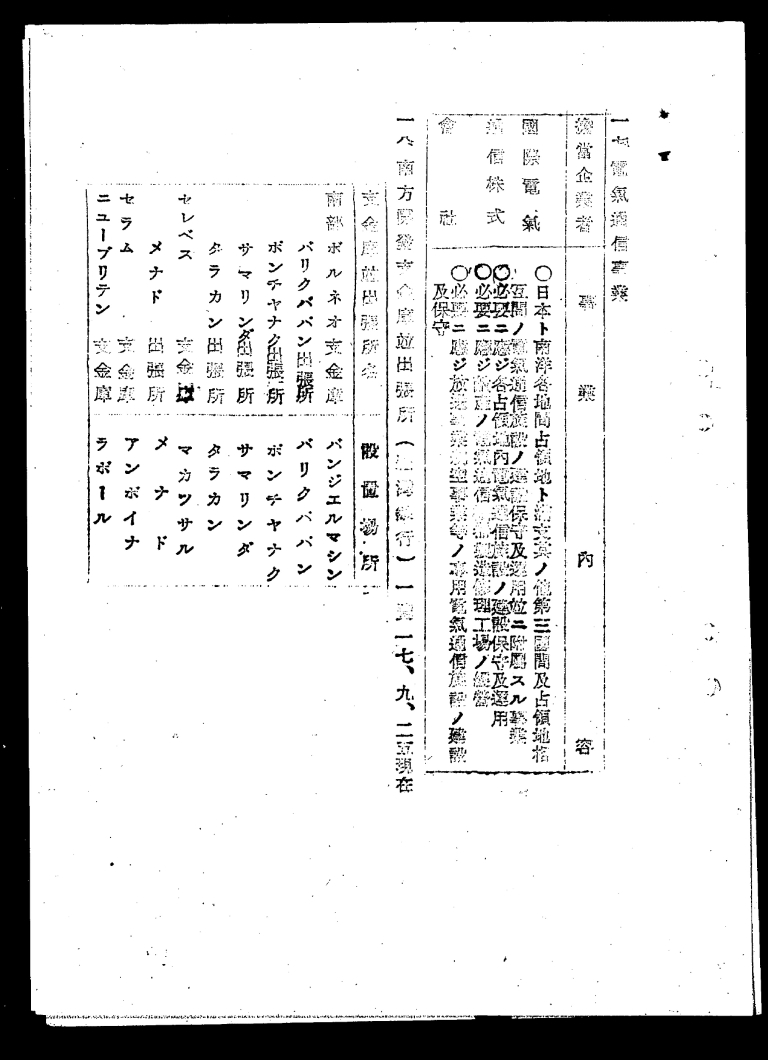 一七 電氣通信事業
擔當企業者 事業內容
國際電氣
通信株式
會社
○日本ト南洋各地間占領地ト滿支其ノ他第三國間及占領地相
互間ノ電氣通信施設ノ建設保守及運用竝ニ附屬スル事業
○必要ニ應ジ各占領地內電氣通信施設ノ建設保守及運用
○必要ニ應ジ ノ電氣通信 修理工場ノ經營
○必要ニ應ジ放送事業航空事業等ノ專用電氣通信施設ノ建設
及保守
一八 南方開發支金庫竝出張所(臺灣銀行)一 一七、九、二五現在
支金庫竝出張所名 設置場所
南部ボルネオ支金庫 バンジエルマシン
バリクパパン出張所 バリクパパン
ポンチヤナク出張所 ポンチヤナク
サマリンダ出張所 サマリンダ
タラカン出張所 タラカン
セレベス 支金庫 マカツサル
メナド 出張所 メナド
セラム 支金庫 アンボイナ
ニューブリテン 支金庫 ラボール